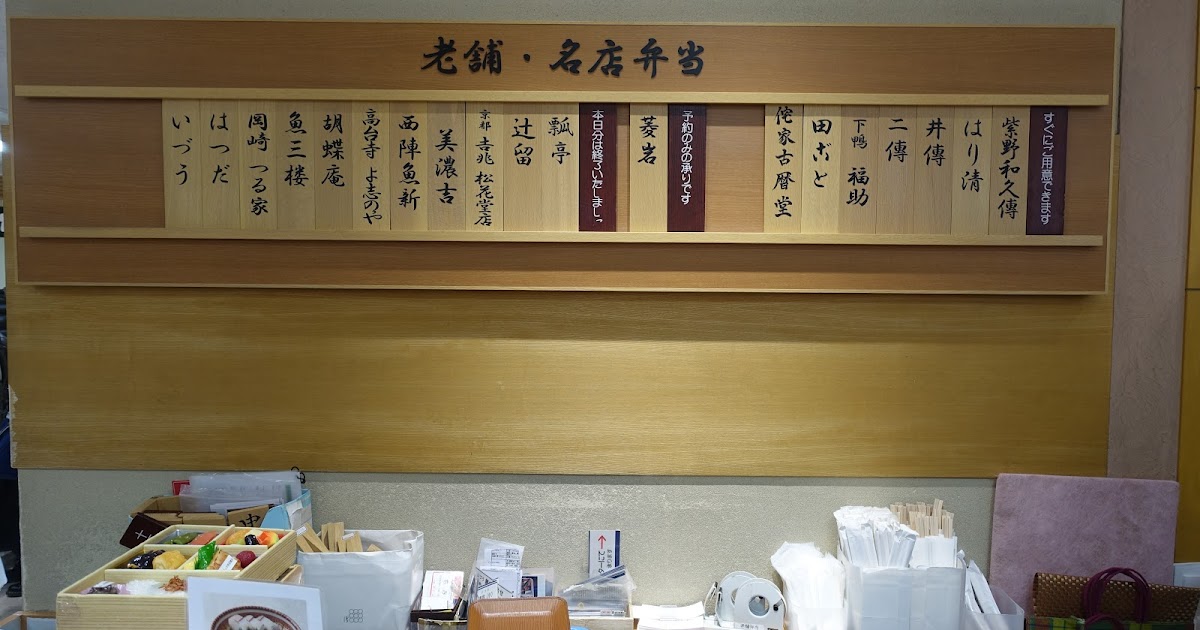 老舗・名店弁当
すぐにご用意できます
紫野和久傳
はり清
井傳
二傳
下鴨 福助
田ごと
侘家古暦堂
予約のみの承りです
菱岩
本日分は終了いたしました
瓢亭
辻留
京都 𠮷兆 松花堂店
美濃吉
西陣魚新
高台寺 よ志のや
胡蝶庵
魚三楼
岡崎 つる家
はつだ
いづう